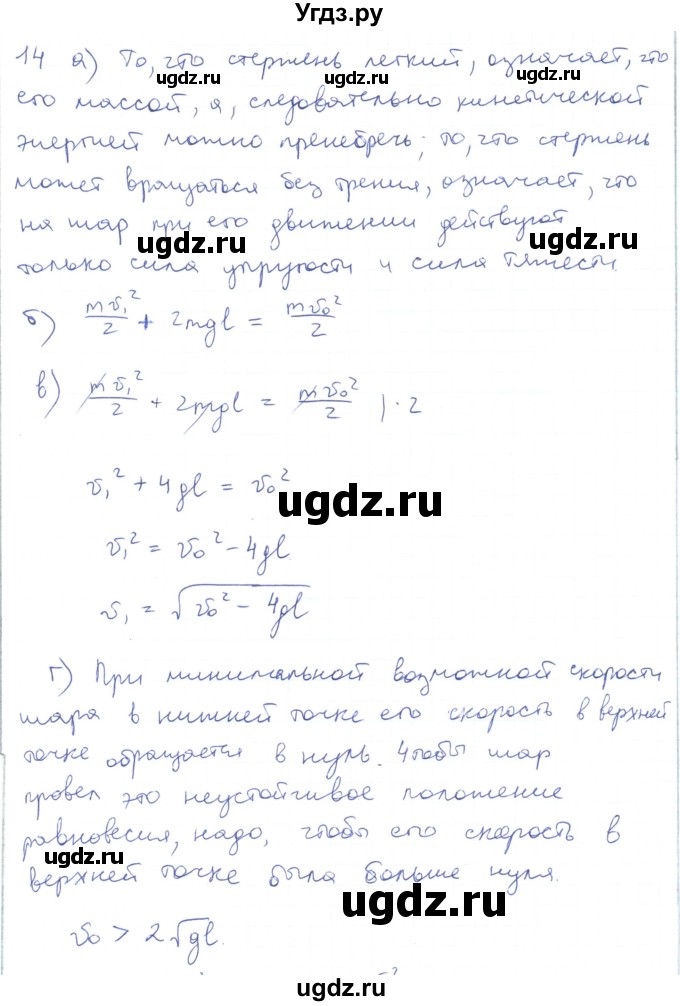 Угдз.ру
14 а) То, что стержень легкий, означает, что
его массой, а, следовательно кинетической
энергией можно пренебречь; то, что стержень
может вращаться без трения, означает, что
на шар при его движении действуют
только сила упругости и сила тяжести.
б) mv₁²/2 + 2mgl = mv₀²/2
в) mv₁²/2 + 2mgl = mv₀²/2 | · 2
v₁² + 4gl = v₀²
v₁² = v₀² - 4gl.
v₁ = √(v₀² - 4gl)
г) При минимальной возможной скорости
шара в нижней точке его скорость в верхней
точке обращается в нуль. Чтобы шар
провел это неустойчивое положение
равновесия, надо, чтобы его скорость в
верхней точке была больше нуля.
v₀ > 2√gl.
ugdz.ru
ugdz.ru
ugdz.ru
ugdz.ru
ugdz.ru
ugdz.ru
ugdz.ru
ugdz.ru
ugdz.ru
ugdz.ru
Угдз.ру